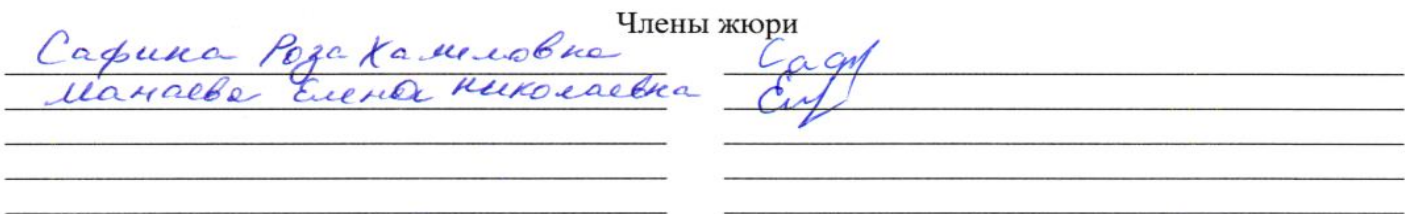 Члены жюри
Сафина Роза Халиловна Саф
Манаева Елена Николаевна